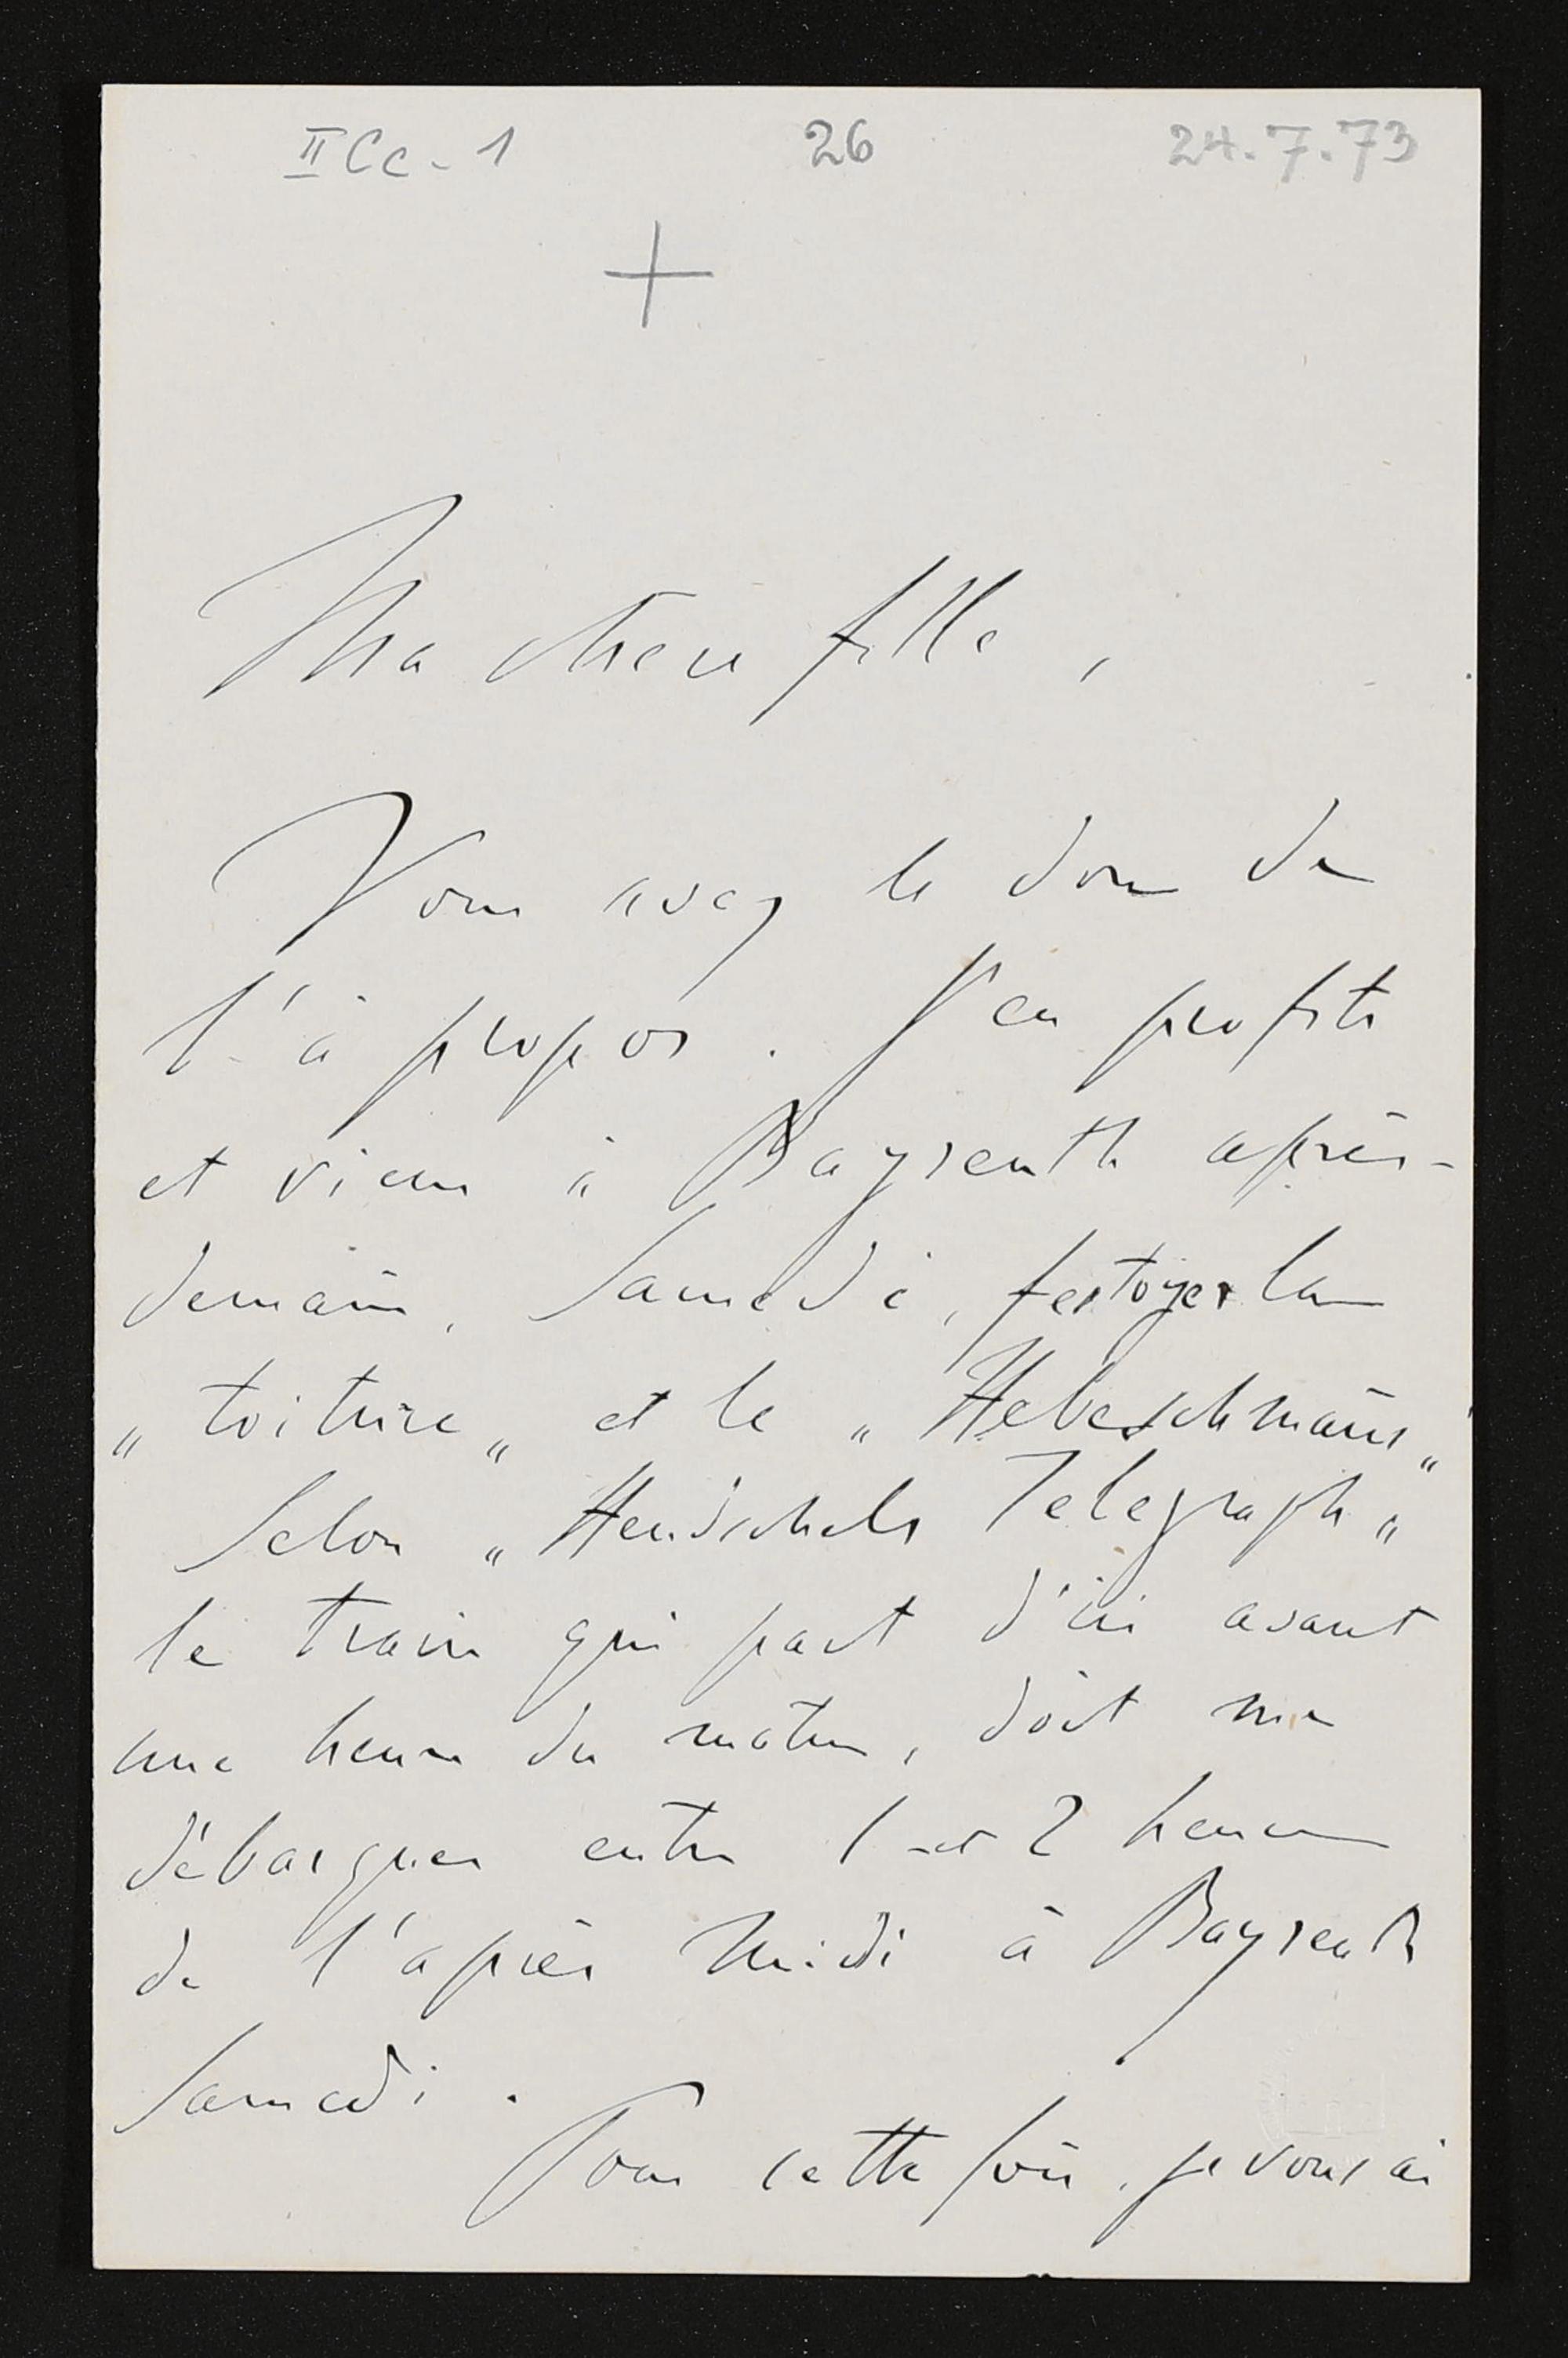 II Cc - 1 26 24.7.73
+
Ma chère fille,
Vous avez le don de
l'à propos. J'en profite
et viens à Bayreuth après-
demain, Samedi, festoyer la
„toiture„ et le „Hebeschmaus„
Selon „Hendschels Telegraph„
le train qui part d'ici avant
une heure du matin, doit me
débarquer entre 1 et 2 heures
de l'après midi à Bayreuth
Samedi.
Pour cette fois, je vous ai